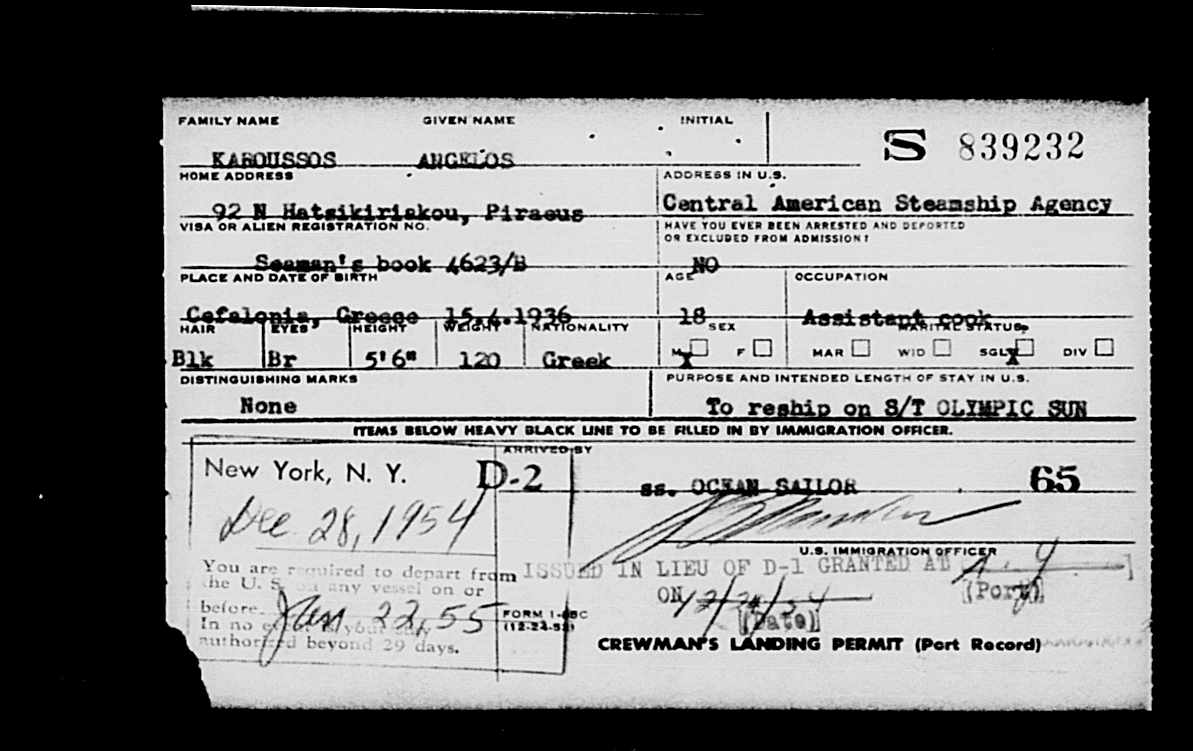 FAMILY NAME GIVEN NAME INITIAL
S 839232
KAROUSSOS ANGELOS
HOME ADDRESS ADDRESS IN U.S.
92 N Hatsikiriakou, Piraeus Central American Steamship Agency
VISA OR ALIEN REGISTRATION NO. HAVE YOU EVER BEEN ARRESTED AND DEPORTED
OR EXCLUDED FROM ADMISSION?
Seaman's book 4623/B NO
PLACE AND DATE OF BIRTH AGE OCCUPATION
Cefalonia, Greece 15.4.1936 18 Assistant cook
HAIR EYES HEIGHT WEIGHT NATIONALITY SEX MARITAL STATUS
Blk Br 5'6" 120 Greek M X F MAR WID SGL X DIV
DISTINGUISHING MARKS PURPOSE AND INTENDED LENGTH OF STAY IN U.S.
None To reship on S/T OLYMPIC SUN
ITEMS BELOW HEAVY BLACK LINE TO BE FILLED IN BY IMMIGRATION OFFICER.
ARRIVED BY
New York, N. Y. D-2 ss. OCEAN SAILOR 65
Dec 28, 1954
U.S. IMMIGRATION OFFICER
You are required to depart from ISSUED IN LIEU OF D-1 GRANTED AT N.Y
the U. S. on any vessel on or (Port)
before Jan 22, 55 ON
FORM I-95C
(12-24-52) (Date)
In no event is your stay
authorized beyond 29 days.
CREWMAN'S LANDING PERMIT (Port Record)